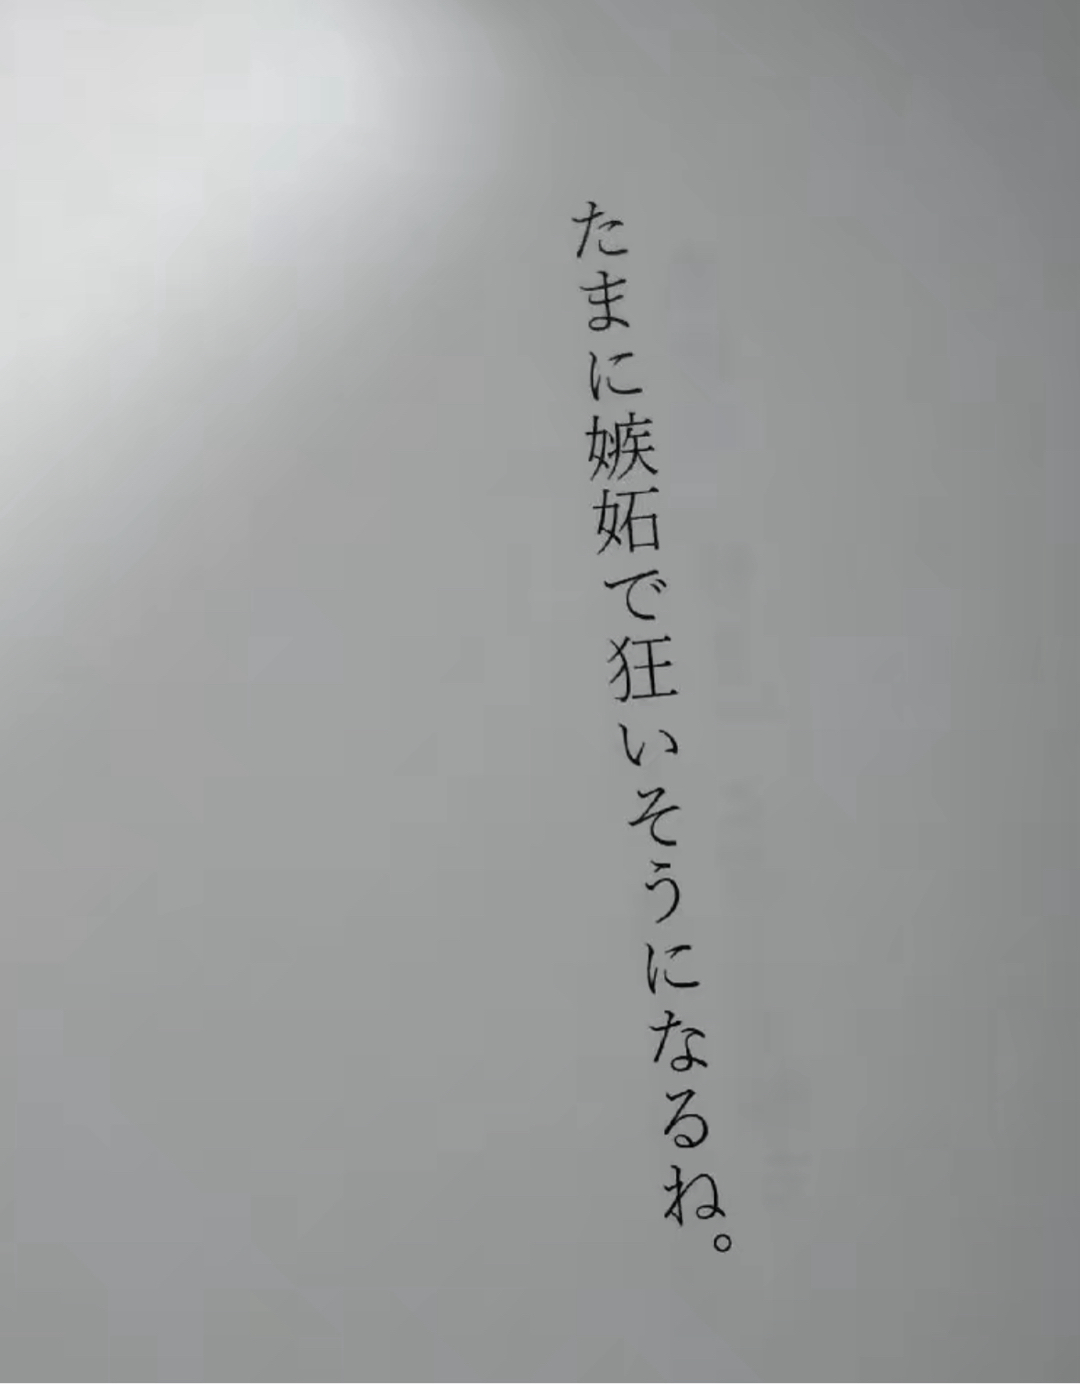 たまに嫉妬で狂いそうになるね。